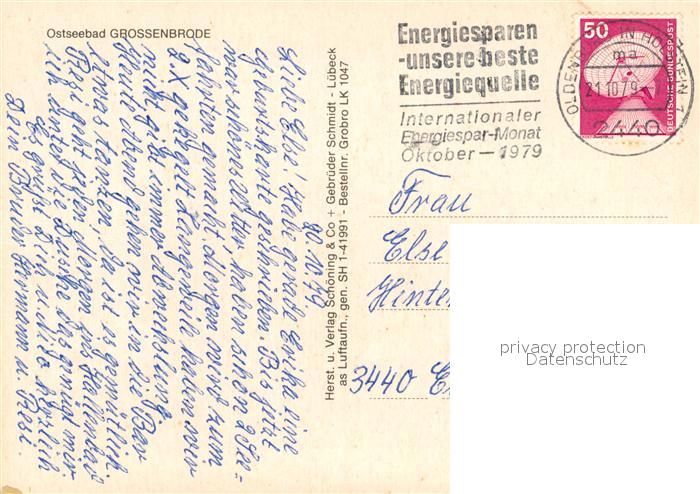 Ostseebad GROSSENBRODE
Energiesparen
-unsere beste
Energiequelle
Internationaler
Energiespar-Monat
Oktober - 1979
50
DEUTSCHE BUNDESPOST
OLDENBURG IN HOLSTEIN 1
21.10.79
2440
20.10.79
Liebe Else! Habe gerade Erika eine
Geburtskarte geschrieben. Bis jetzt
war schönes Wetter, haben schon 2 See-
fahrten gemacht. Morgen wird zum
2. X gekegelt. Langeweile haben wir
nicht, gibt immer Abwechslung.
Heute Abend gehen wir in die Bar
etwas tanzen, da ist es gemütlich
Resi geht jeden Morgen ins Hallenbad
ich unter die Dusche das genügt mir.
Es grüßt Dich u. Mia herzlich
Dein Bruder Hermann u. Resi.
Herst. u. Verlag Schöning & Co + Gebrüder Schmidt - Lübeck
as Luftaufn., gen. SH 1-41991 - Bestellnr. Grobro LK 1047
Frau
Else
Hinter
3440
privacy protection
Datenschutz